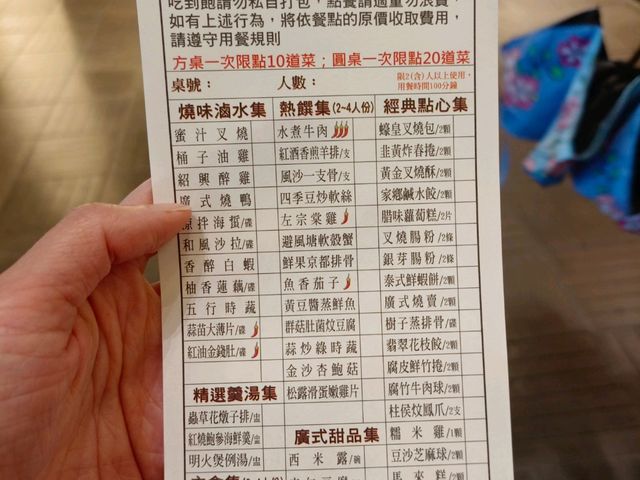 吃到飽請勿私自打包，點餐請適量勿浪費，
如有上述行為，將依餐點的原價收取費用，
請遵守用餐規則
方桌一次限點10道菜；圓桌一次限點20道菜
桌號： 人數： 限2(含)人以上使用，
用餐時間100分鐘
燒味滷水集
蜜汁叉燒
桶子油雞
紹興醉雞
廣式燒鴨
涼拌海蜇/碟
和風沙拉/碟
香醉白蝦
柚香蓮藕/碟
五行時蔬
蒜苗大薄片/碟
紅油金錢肚/碟
精選羹湯集
蟲草花燉子排/盅
紅燒鮑參海鮮羹/盅
明火煲例湯/盅
熱饌集(2~4人份)
水煮牛肉
紅酒香煎羊排/支
風沙一支骨/支
四季豆炒軟絲
左宗棠雞
避風塘軟殼蟹
鮮果京都排骨
魚香茄子
黃豆醬蒸鮮魚
群菇肚菌炆豆腐
蒜炒綠時蔬
金沙杏鮑菇
松露滑蛋嫩雞片
廣式甜品集
西米露/碗
經典點心集
蠔皇叉燒包/2顆
韭黃炸春捲/2顆
黃金叉燒酥/2顆
家鄉鹹水餃/2顆
腊味蘿蔔糕/2片
叉燒腸粉/2條
銀芽腸粉/2條
泰式鮮蝦餅/2顆
廣式燒賣/2顆
樹子蒸排骨/碟
翡翠花枝餃/2顆
腐皮鮮竹捲/2顆
腐竹牛肉球/2顆
柱侯炆鳳爪/2支
糯米雞/1顆
豆沙芝麻球/2顆
馬來糕/2顆